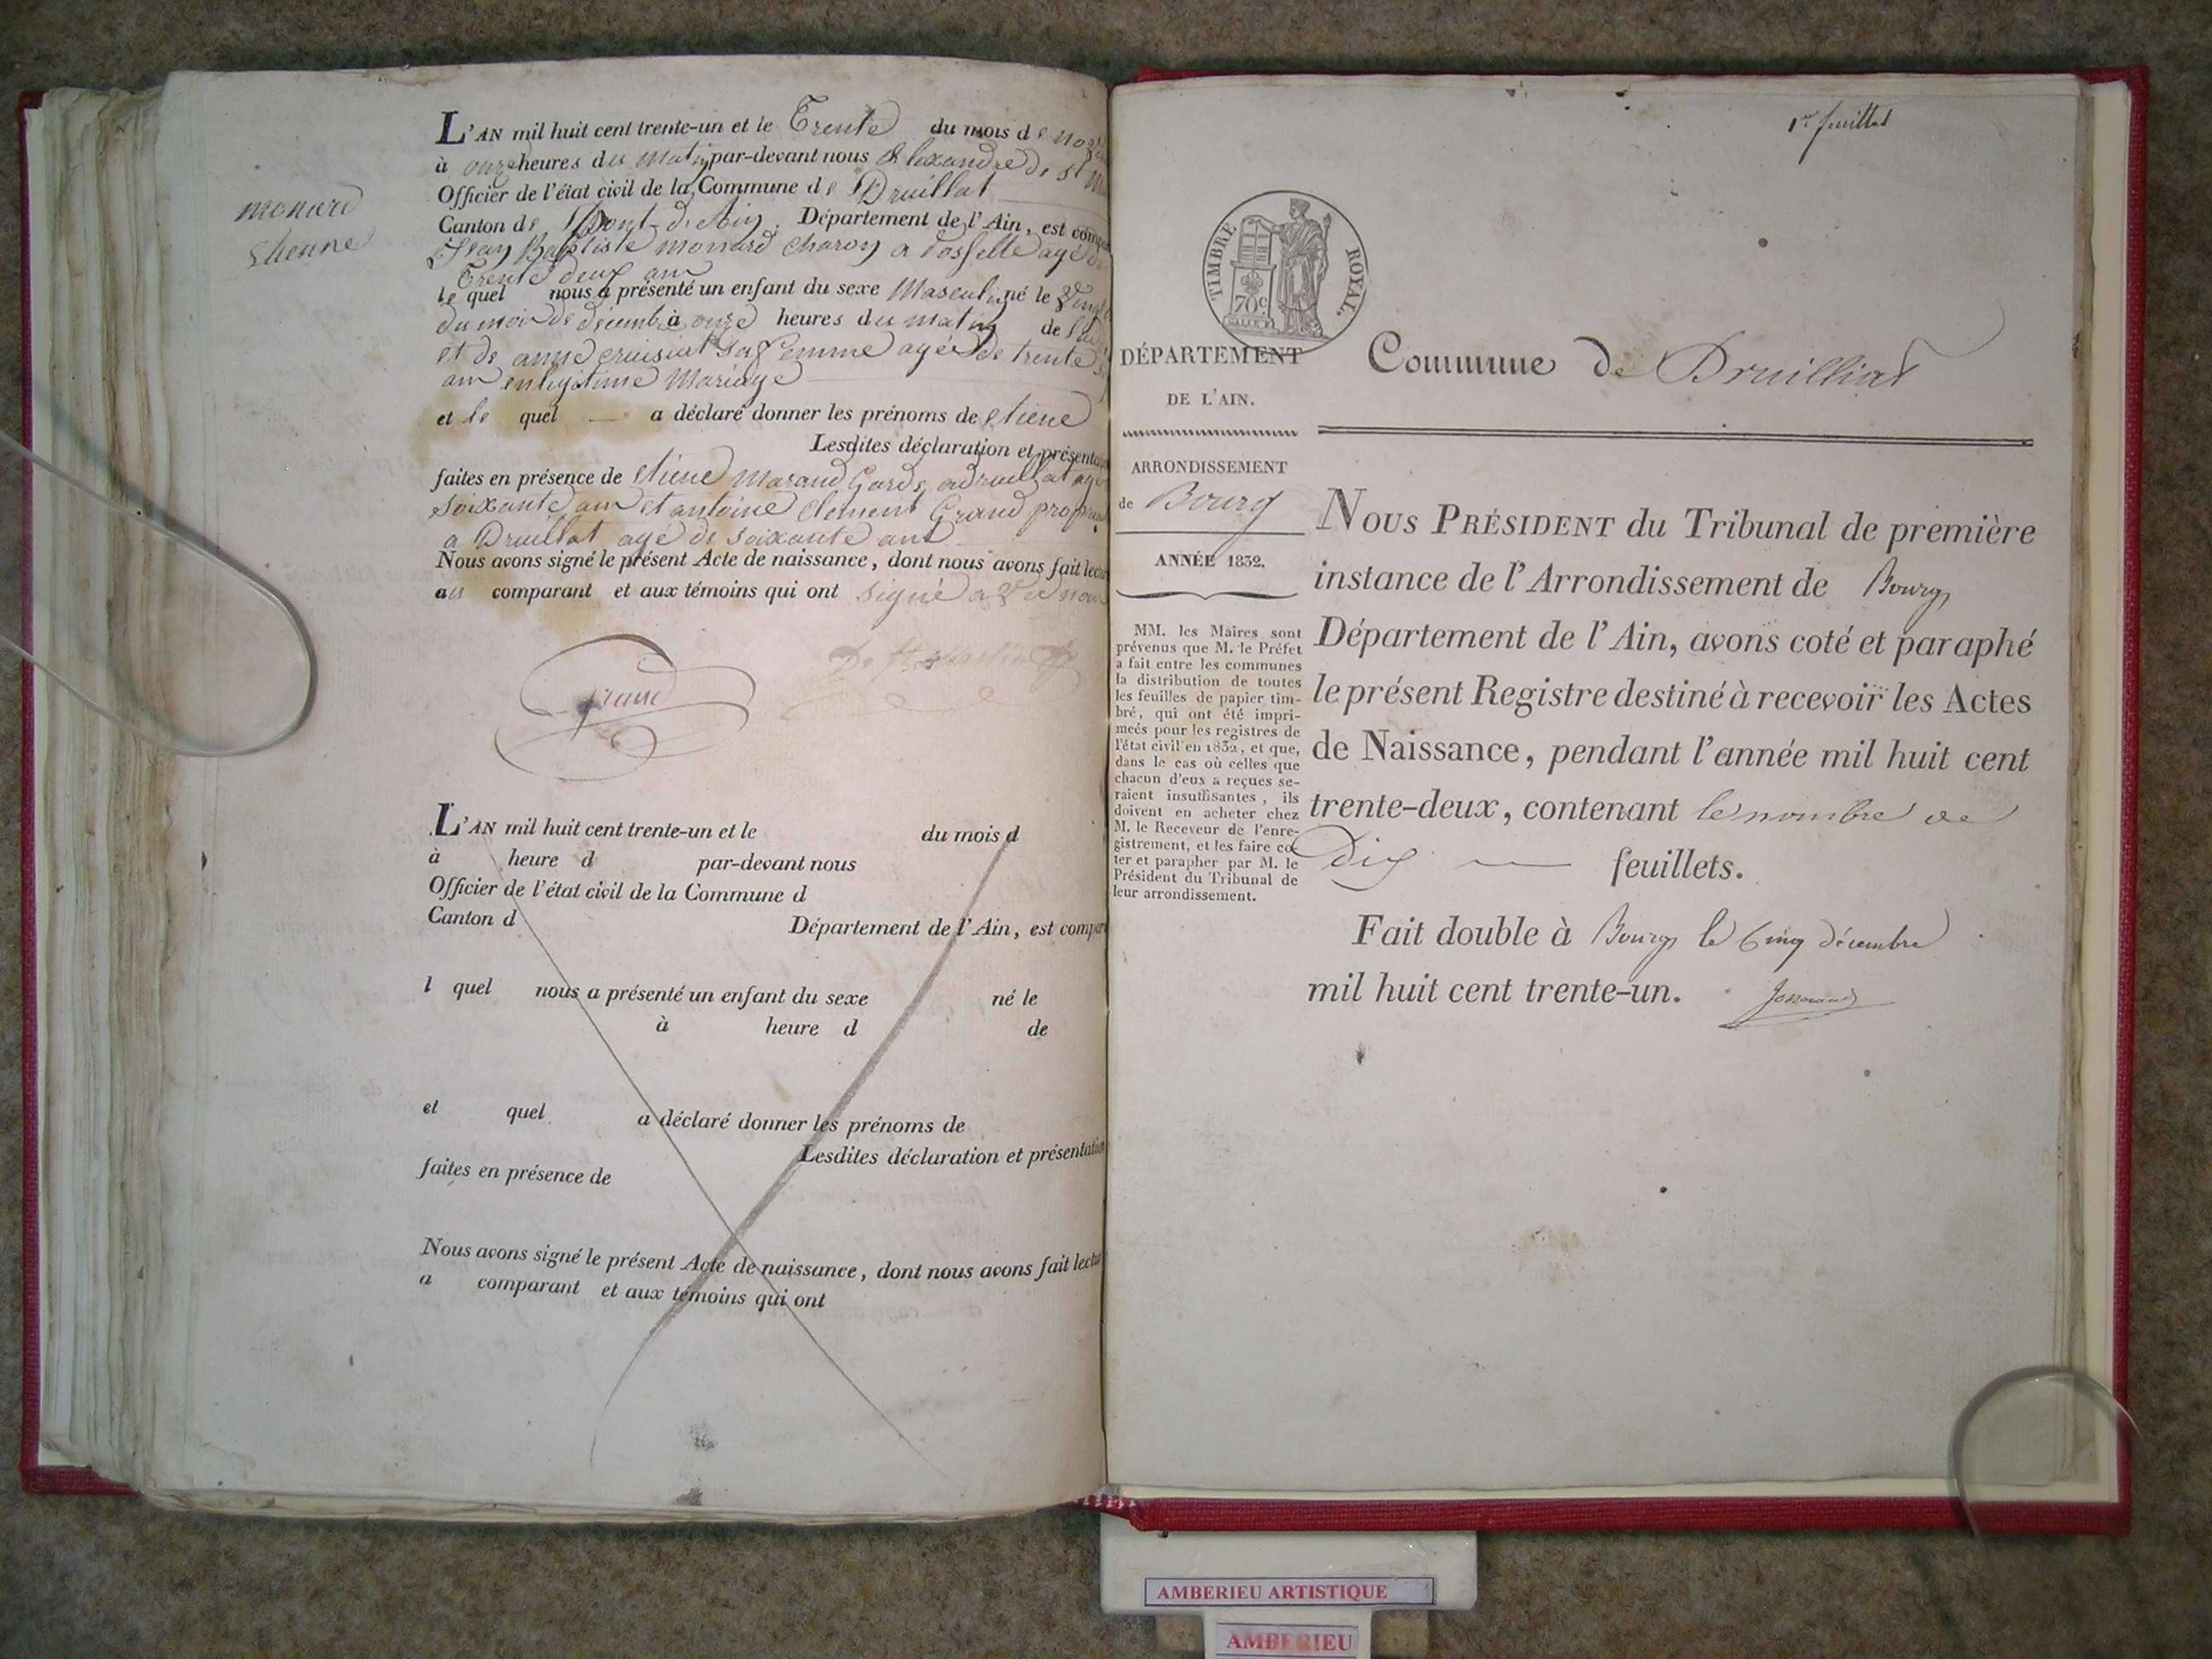 monard
Etienne
L'AN mil huit cent trente-un et le Trente du mois de
à onze heures du matin par-devant nous Alexandre de St
Officier de l'état civil de la Commune de Druillat
Canton de Pont-d'Ain. Département de l'Ain, est comp
Jean Baptiste monard charon a Rossette agé de
Trente deux ans
le quel nous a présenté un enfant du sexe Masculin né le
du mois de décemb. à onze heures du matin de
et de anne cruisiat sa femme agée de trente
ans en légitime Mariage
et le quel a déclaré donner les prénoms de etiene
Lesdites déclaration et présenta
faites en présence de etiene Marand Garde a druillat agé
soixante ans et antoine Clement Grand propri
a Druillat agé de soixante ans
Nous avons signé le présent Acte de naissance, dont nous avons fait lectu
au comparant et aux témoins qui ont signé avec nous
grand De St Martin
L'AN mil huit cent trente-un et le du mois d
à heure d par-devant nous
Officier de l'état civil de la Commune d
Canton d Département de l'Ain, est compar
l quel nous a présenté un enfant du sexe né le
à heure d de
et quel a déclaré donner les prénoms de
Lesdites déclaration et présentation
faites en présence de
Nous avons signé le présent Acte de naissance, dont nous avons fait lectu
a comparant et aux témoins qui ont
1er feuillet
TIMBRE ROYAL.
70c
DÉPARTEMENT
DE L'AIN.
Commune de Druilliat
ARRONDISSEMENT
de Bourg
ANNÉE 1832.
MM. les Maires sont
prévenus que M. le Préfet
a fait entre les communes
la distribution de toutes
les feuilles de papier tim-
bré, qui ont été impri-
meés pour les registres de
l'état civil en 1832, et que,
dans le cas où celles que
chacun d'eux a reçues se-
raient insuffisantes, ils
doivent en acheter chez
M. le Receveur de l'enre-
gistrement, et les faire co-
ter et parapher par M. le
Président du Tribunal de
leur arrondissement.
NOUS PRÉSIDENT du Tribunal de première
instance de l'Arrondissement de Bourg
Département de l'Ain, avons coté et paraphé
le présent Registre destiné à recevoir les Actes
de Naissance, pendant l'année mil huit cent
trente-deux, contenant le nombre de
Dix feuillets.
Fait double à Bourg le Cinq décembre
mil huit cent trente-un.
AMBERIEU ARTISTIQUE
AMBERIEU